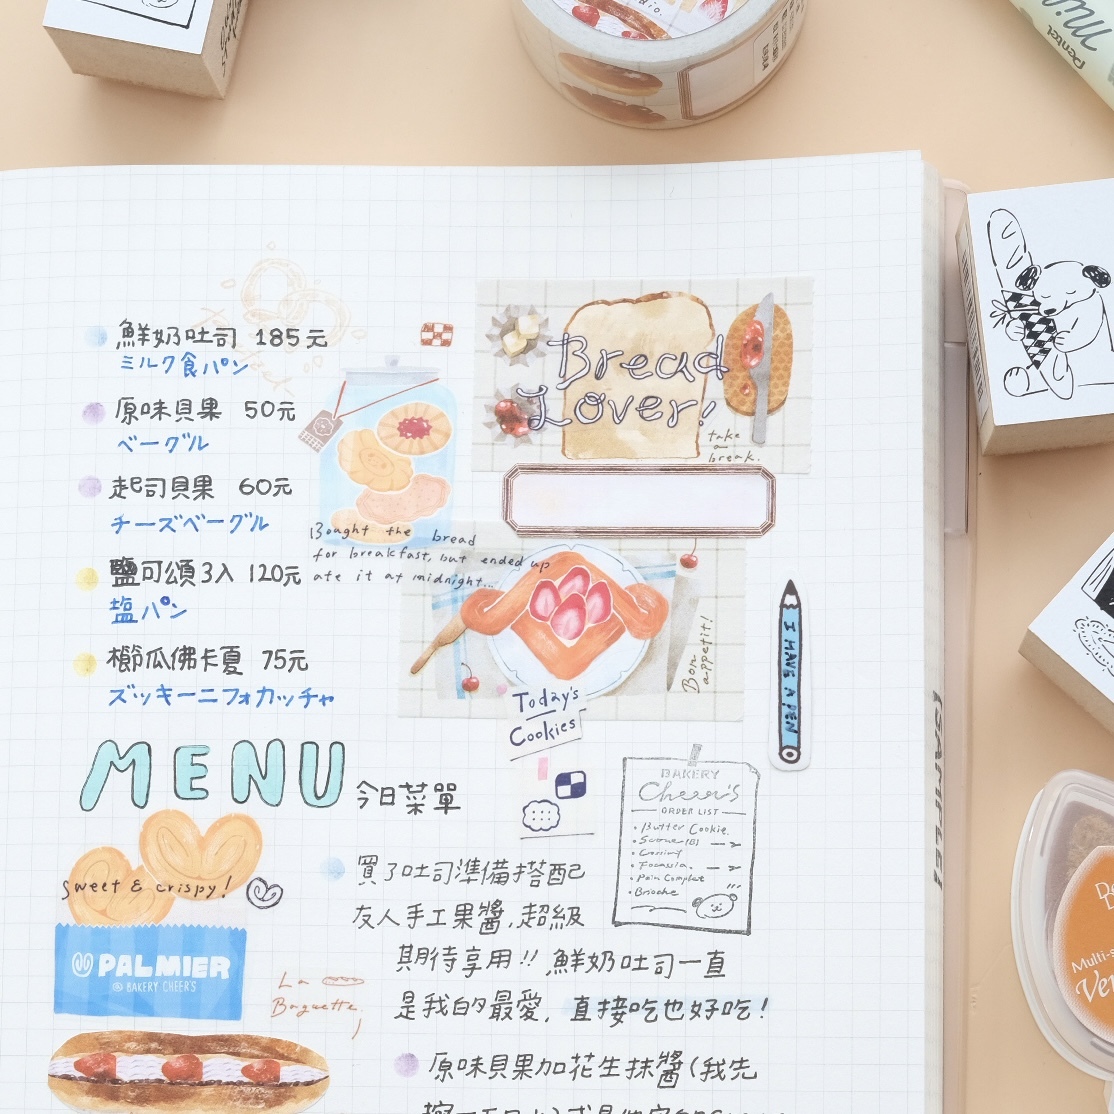 鮮奶吐司 185元
ミルク食パン
原味貝果 50元
ベーグル
起司貝果 60元
チーズベーグル
鹽可頌3入 120元
塩パン
櫛瓜佛卡夏 75元
ズッキーニフォカッチャ
Bread
Lover!
take
a
break.
Bought the bread
for breakfast, but ended up
ate it at midnight...
Bon
appetit!
Today's
Cookies
I HAVE A PEN
MENU
今日菜單
BAKERY
Cheer's
ORDER LIST
Butter Cookie.
Focassia.
Pain Complet
Brioche
sweet & crispy!
PALMIER
BAKERY CHEER'S
La
Baguette
買了吐司準備搭配
友人手工果醬,超級
期待享用!!鮮奶吐司一直
是我的最愛,直接吃也好吃!
原味貝果加花生抹醬(我先
Pentel
Multi-s
Ver